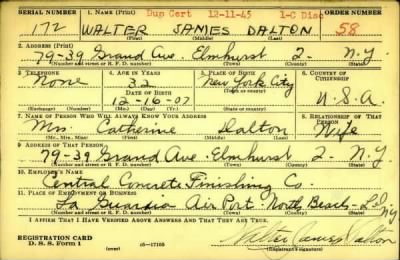 Dup Cert 12-11-45 1-C Disc
SERIAL NUMBER 1. NAME (Print) ORDER NUMBER
172 WALTER JAMES DALTON 58
(First) (Middle) (Last)
2. ADDRESS (Print)
79-39 Grand Ave. Elmhurst 2- N.Y
(Number and street or R. F. D. number) (Town) (County) (State)
3. TELEPHONE 4. AGE IN YEARS 5. PLACE OF BIRTH 6. COUNTRY OF CITIZENSHIP
None 32 New York City
DATE OF BIRTH (Town or county)
12-16-07 U.S.A
(Exchange) (Number) (Mo.) (Day) (Yr.) (State or country)
7. NAME OF PERSON WHO WILL ALWAYS KNOW YOUR ADDRESS 8. RELATIONSHIP OF THAT PERSON
Mrs. Catherine Dalton Wife
(Mr., Mrs., Miss) (First) (Middle) (Last)
9. ADDRESS OF THAT PERSON
79-39 Grand Ave. Elmhurst 2- N.Y
(Number and street or R. F. D. number) (Town) (County) (State)
10. EMPLOYER'S NAME
Central Concrete Finishing Co.
11. PLACE OF EMPLOYMENT OR BUSINESS
La Guardia Air Port- North Beach- L.I NY
(Number and street or R. F. D. number) (Town) (County) (State)
I AFFIRM THAT I HAVE VERIFIED ABOVE ANSWERS AND THAT THEY ARE TRUE.
REGISTRATION CARD
D. S. S. Form 1 (over) 16-17105 Walter James Dalton
(Registrant's signature)